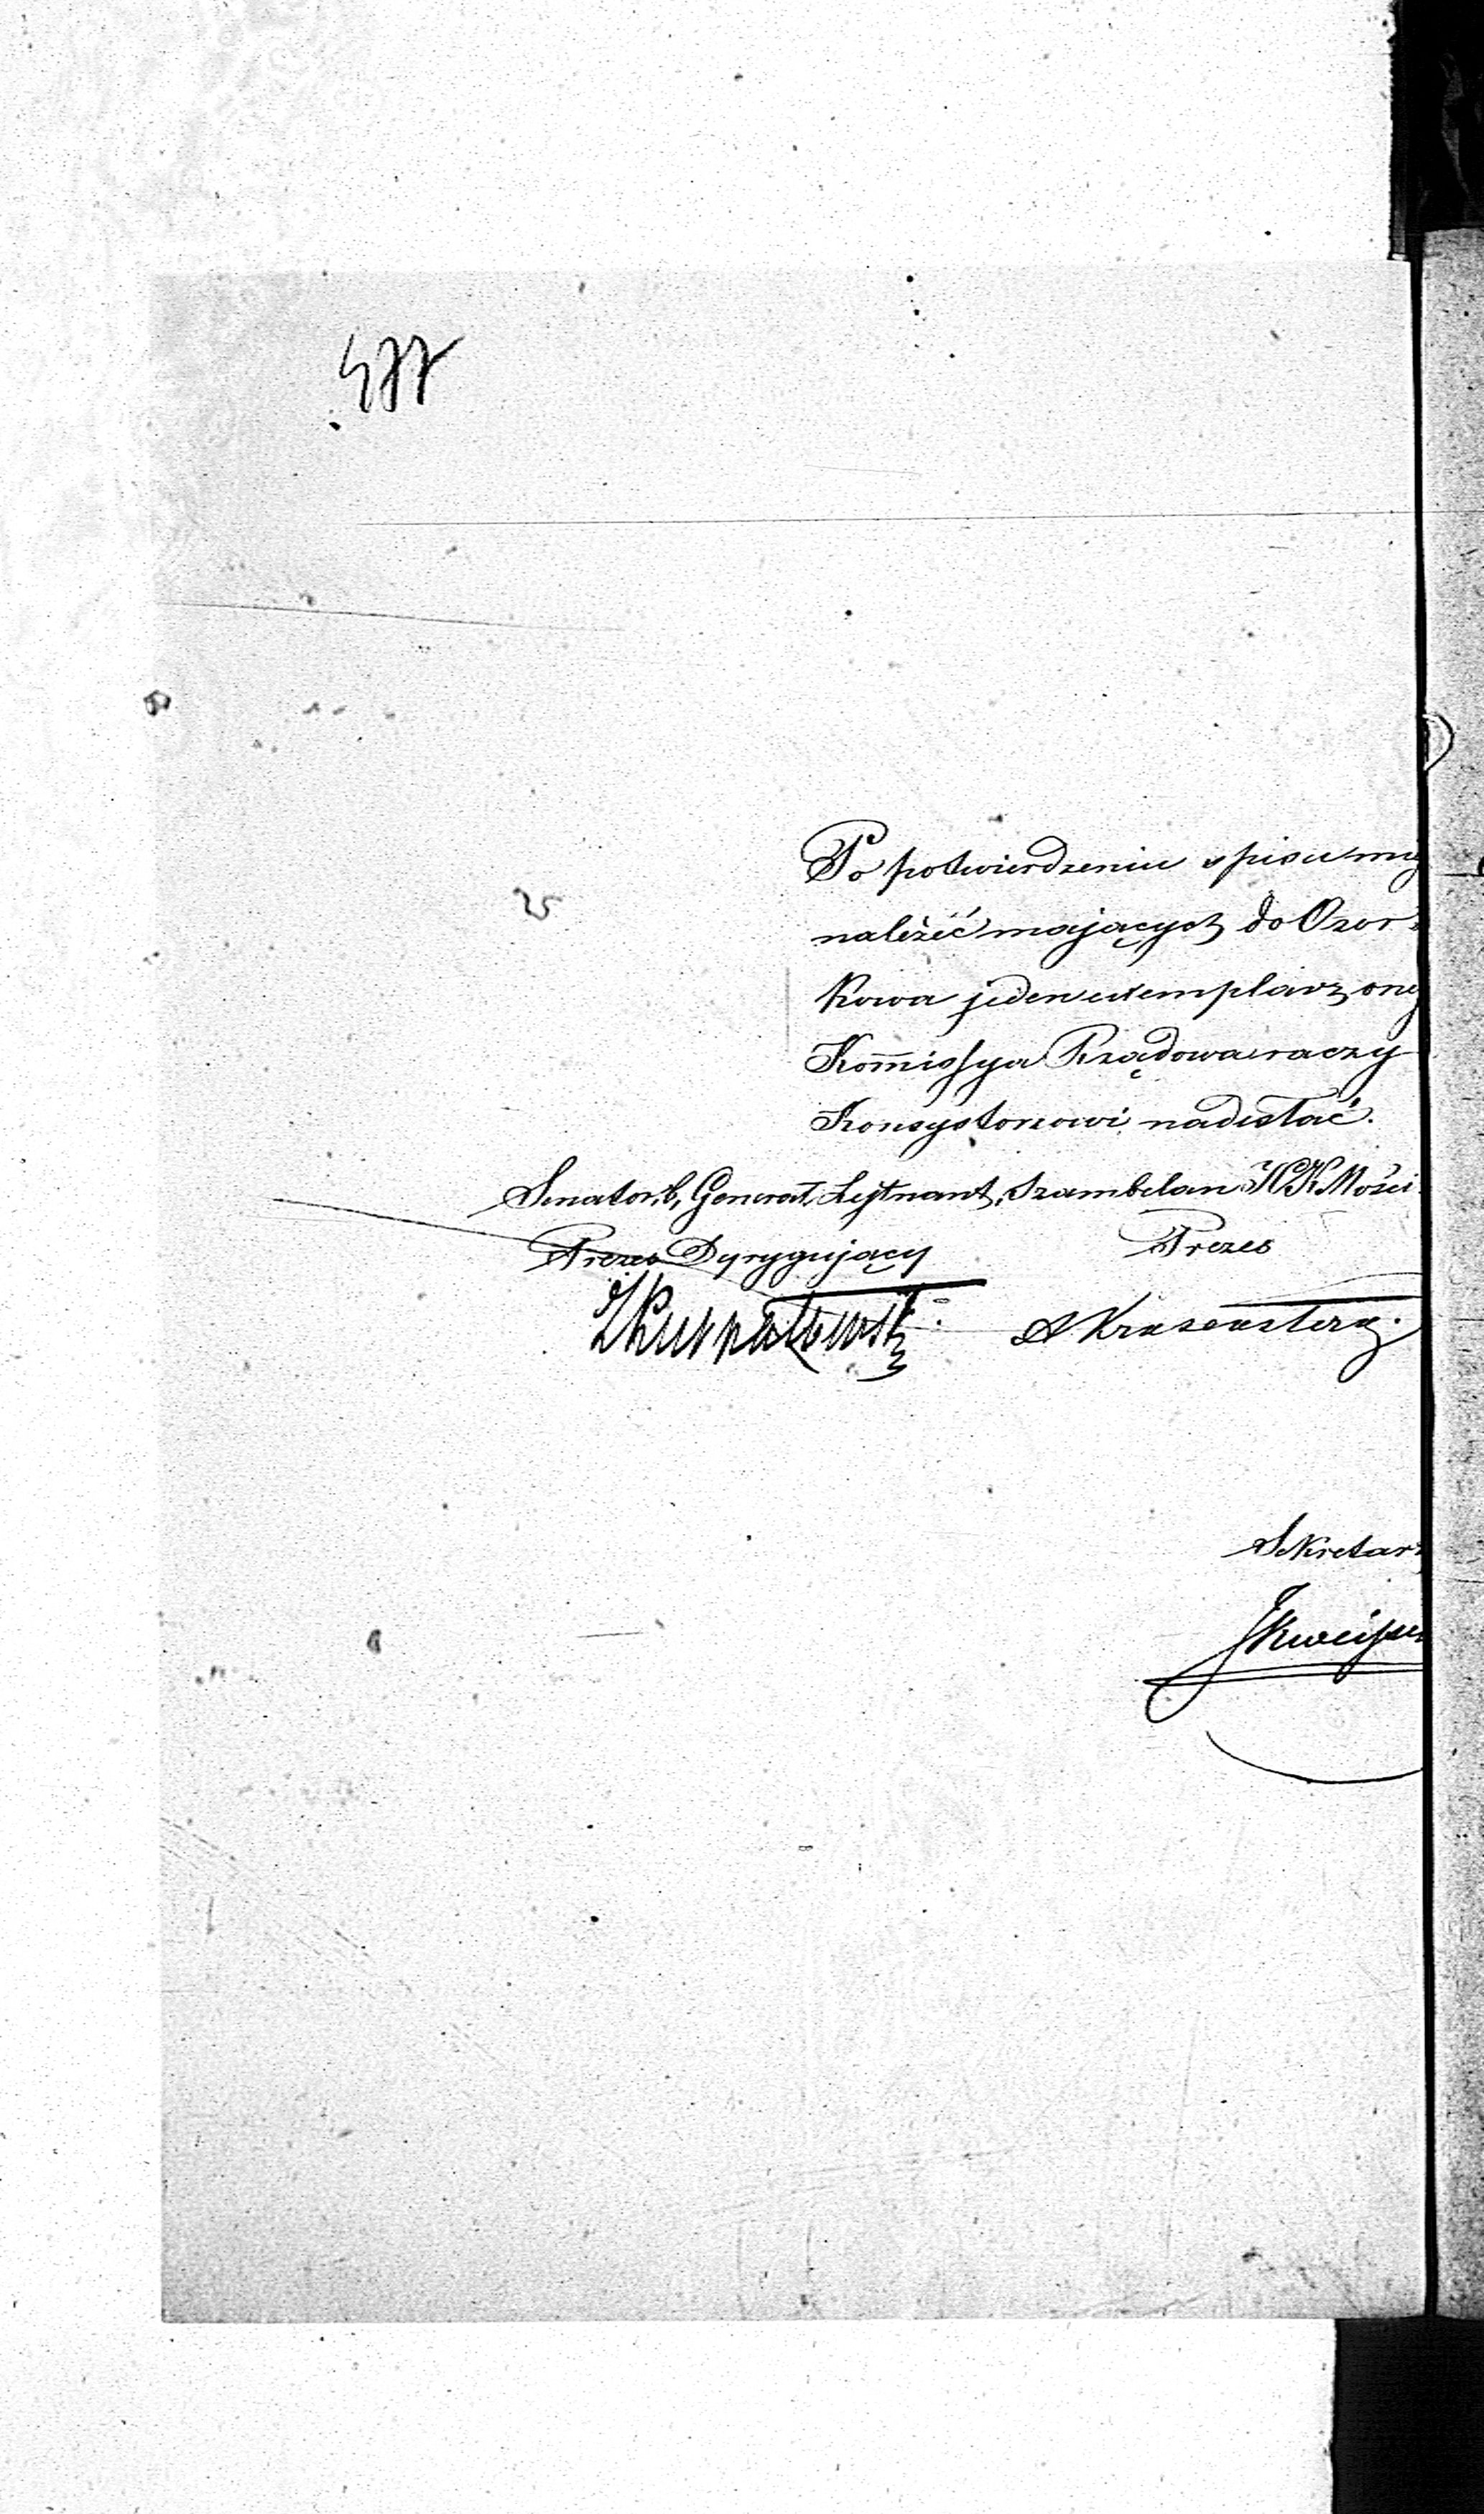 477
25
Po potwierdzeniu spisu
należéć mających do Ozor-
kowa jeden exemplarz
Kom̄issya Rządowa raczy
Konsystorzowi nadesłać.
Senator, b, Generał, Lejtnant, Szambelan JKMości
Prezes Dyrygujący Prezes
Sekretarz